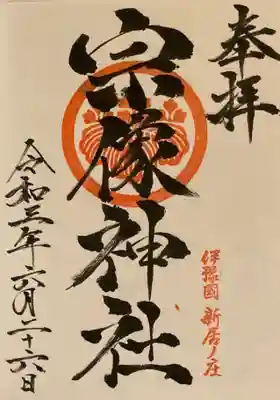 奉拝
伊豫國 新居ノ庄
宗像神社
令和三年六月二十六日